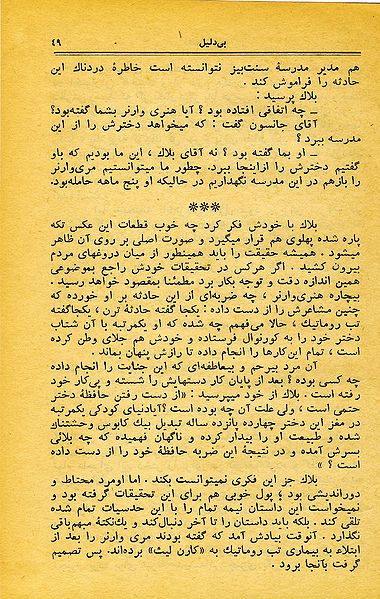 بی‌دلیل ۴۹
هم مدیر مدرسهٔ سنت‌بیز نتوانسته است خاطرهٔ دردناك این
حادثه را فراموش کند .
بلاك پرسید :
ــ چه اتفاقی افتاده بود ؟ آیا هنری وارنر بشما گفته‌بود؟
آقای جانسون گفت : که میخواهد دخترش را از این
مدرسه ببرد ؟
ــ او بما گفته بود ؟ نه آقای بلاك ، این ما بودیم که باو
گفتیم دخترش را ازاینجا ببرد. چطور ما میتوانستیم مری‌وارنر
را بازهم در این مدرسه نگهداریم در حالیکه او پنج ماهه حامله‌بود.
***
بلاك با خودش فکر کرد چه خوب قطعات این عکس تکه
پاره شده پهلوی هم قرار میگیرد و صورت اصلی بر روی آن ظاهر
میشود . همیشه حقیقت را باید همینطور از میان دروغهای مردم
بیرون کشید . اگر هرکس در تحقیقات خودش راجع بموضوعی
همین اندازه دقت و توجه بکار برد مطمئنا بمقصود خواهد رسید .
بیچاره هنری‌وارنر ، چه ضربه‌ای از این حادثه بر او خورده که
چنین مشاعرش را از دست داده : یکجا گفته حادثهٔ ترن ، یکجاگفته
تب روماتیك ، حالا می‌فهمم چه شده که او یکمرتبه با آن شتاب
دختر خود را به کورنوال فرستاده و خودش هم جلای وطن کرده
است ، تمام این‌کارها را انجام داده تا رازش پنهان بماند .
آن مرد بیرحم و بیعاطفه‌ای که این جنایت را انجام داده
چه کسی بوده ؟ بعد از پایان کار دستهایش را شسته و پی‌کار خود
رفته است . بلاك از خود میپرسید : «از دست رفتن حافظهٔ دختر
حتمی است ، ولی علت آن چه بوده است ؟آیادنیای کودکی یکمرتبه
در مغز این دختر چهارده پانزده ساله تبدیل بیك کابوس وحشتناك
شده و طبیعت او را بیدار کرده و ناگهان فهمیده که چه بلائی
بسرش آمده و در نتیجهٔ این ضربه حافظهٔ خود را از دست داده
است ؟ »
بلاك جز این فکری نمیتوانست بکند . اما اومرد محتاط و
دوراندیشی بود ؛ پول خوبی هم برای این تحقیقات گرفته بود و
نمیخواست این داستان نیمه تمام را با این حدسیات تمام شده
تلقی کند . بلکه باید داستان را تا آخر دنبال‌کند و یك‌نکتهٔ مبهم‌باقی
نگذارد . آنوقت بیادش آمد که گفته بودند مری وارنر را بعد از
ابتلاء به بیماری تب روماتیك به «کارن لیث» برده‌اند. پس تصمیم
گرفت بآنجا برود .